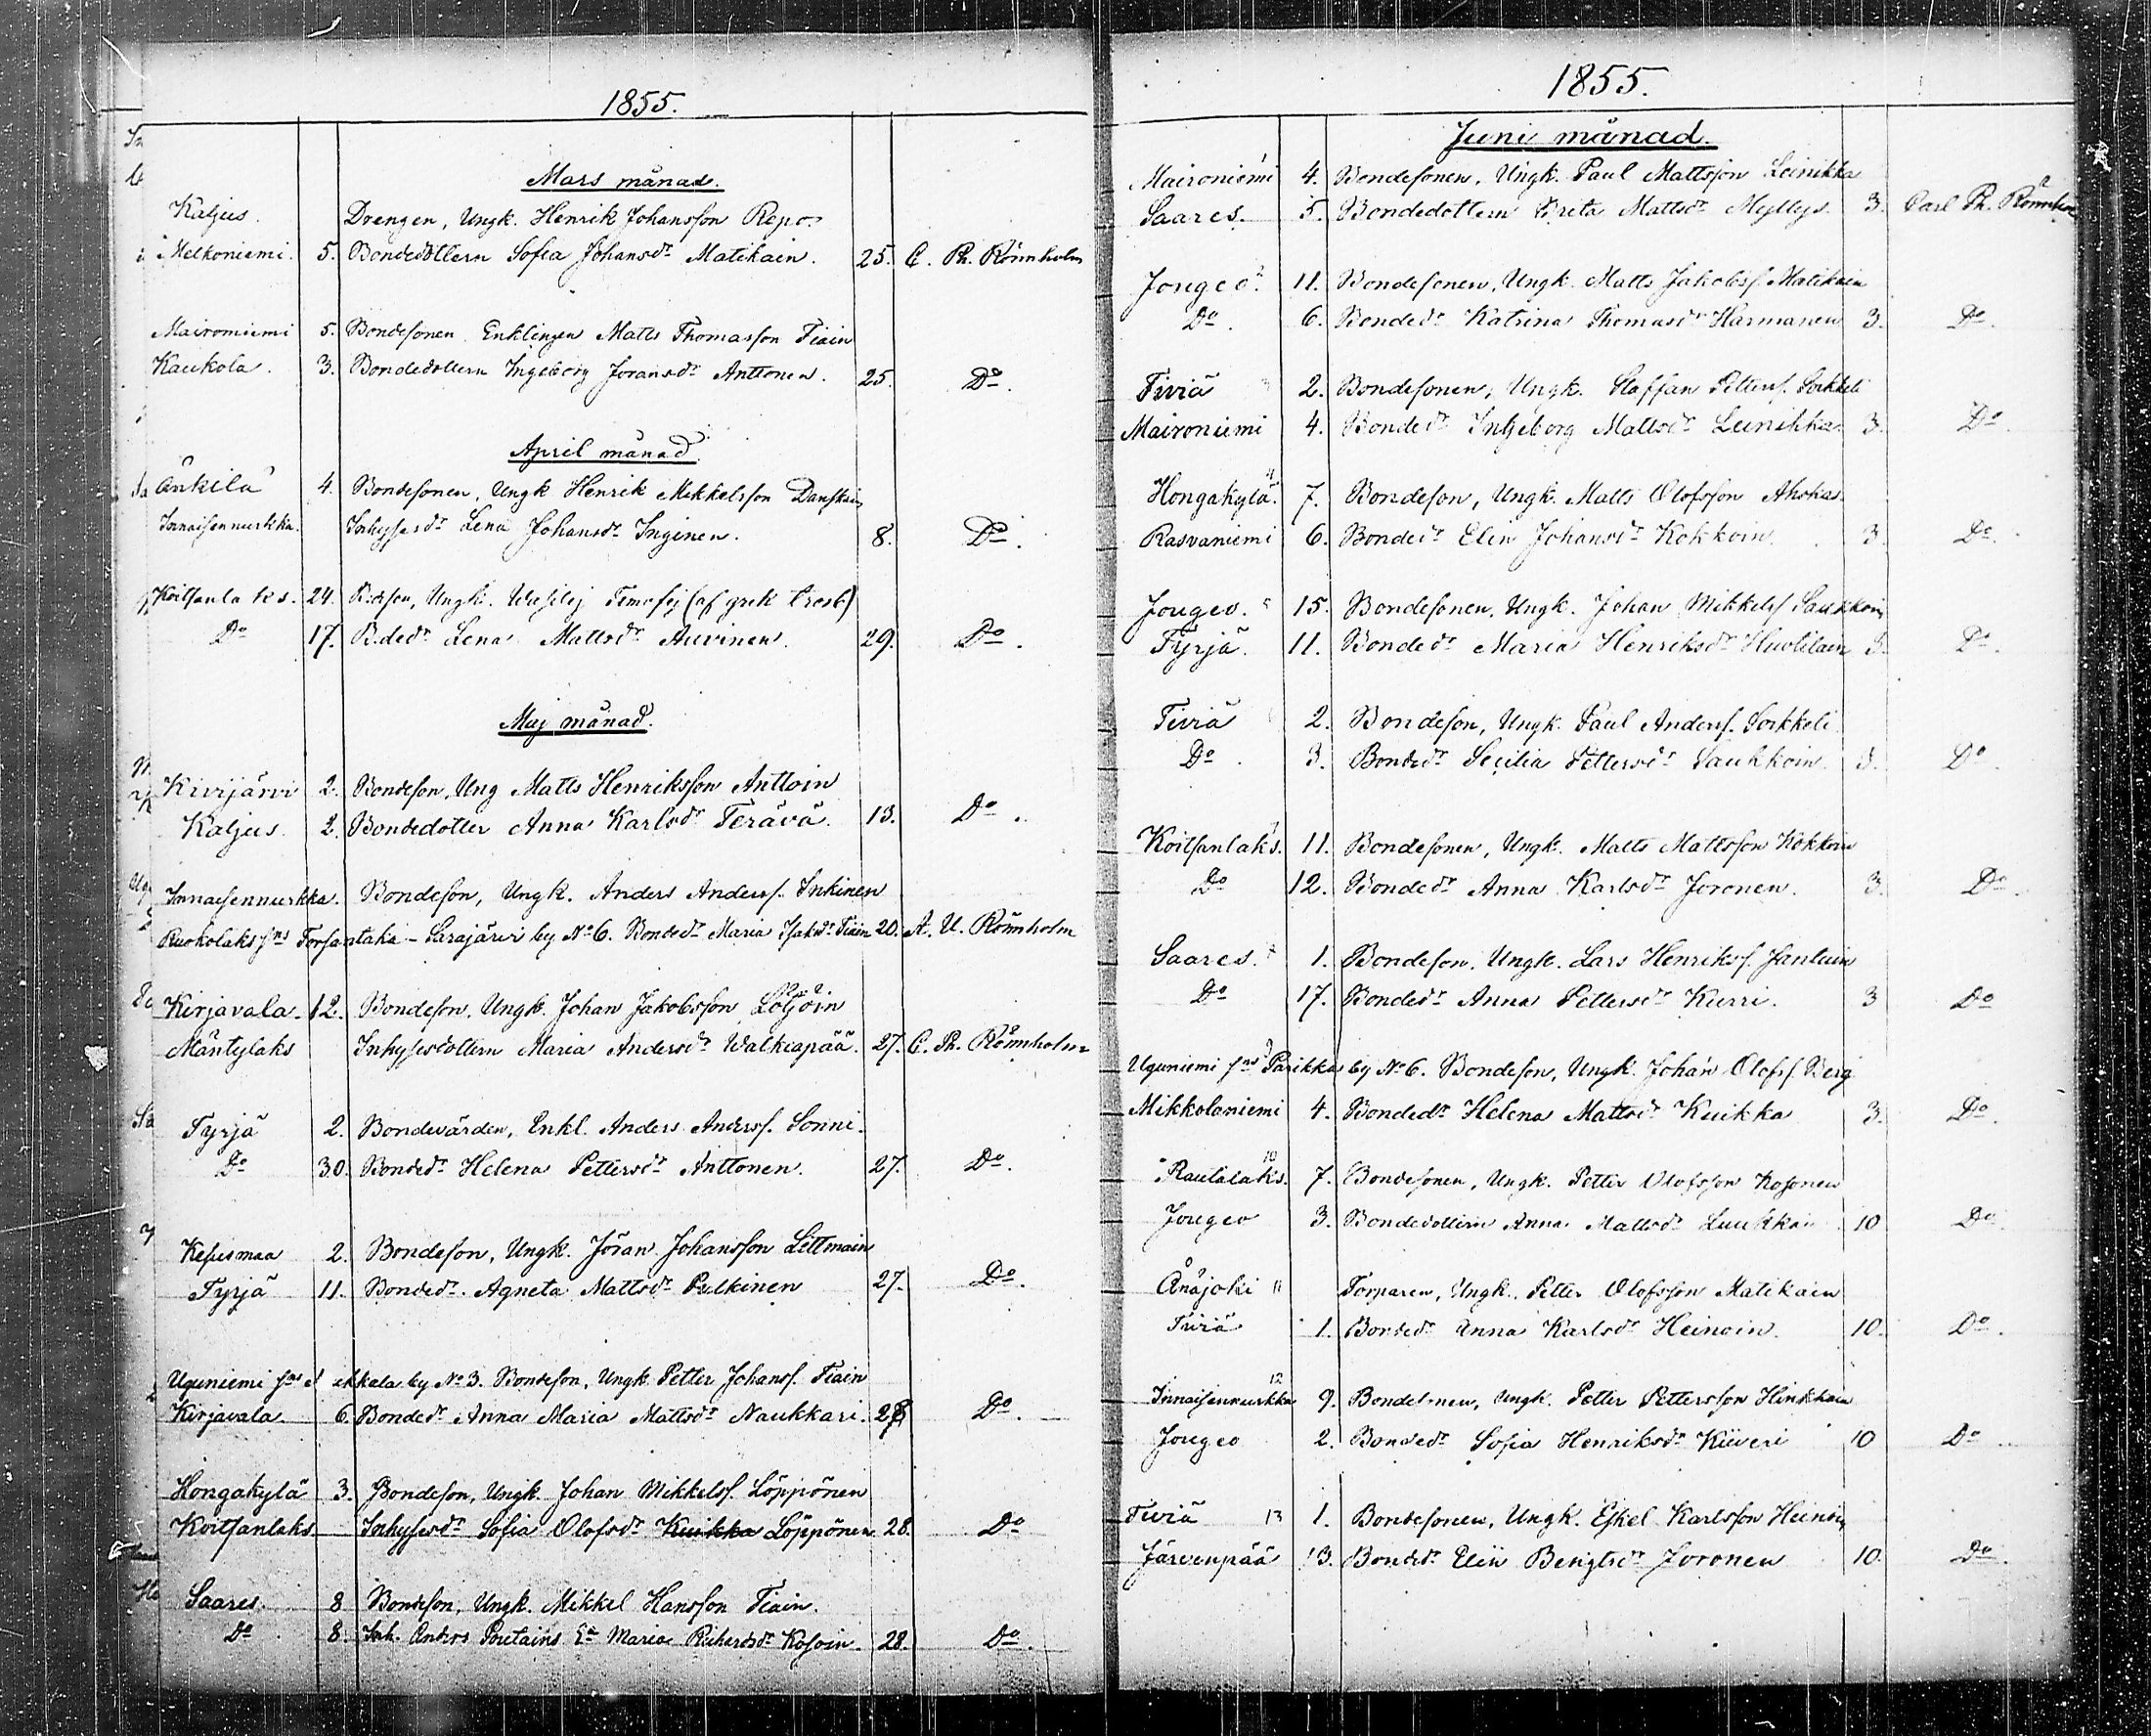 1855.
Mars månad.
Kaljus. Drengen, Ungk. Henrik Johansson Repo.
Melkoniemi. 5. Bondedottern Sofia Johansdr Matikain. 25. C. Ph. Rönnholm
Maironiemi 5. Bondesonen Enklingen Matts Thomasson Tiain
Kaukola. 3. Bondedottern Ingeborg Joransdr Anttonen. 25. Do.
April månad.
Änkilä 4. Bondesonen, Ungk Henrik Mikkelsson Danska
Innaisennurkka. Inhysesdr Lena Johansdr Inginen. 8. Do.
Koitsanlaks. 24. B:deson, Ungk. Wasilej Timofej (af grek trosb)
Do 17. B.dedr Lena Mattsdr Auvinen. 29. Do.
Maj månad.
Kivijärvi 2. Bondeson, Ung Matts Henriksson Anttoin
Kaljus. 2. Bondedotter Anna Karlsdr Terävä. 13. Do.
Innaisennurkka. Bondeson, Ungk. Anders Anderss. Inkinen
Ruokolaks sns Torsantaka - Sarajärvi by No 6. Bondedr Maria Isaksdr Tiain 20. A. U. Rönnholm
Kirjavala. 12. Bondeson, Ungk. Johan Jakobsson Löljöin
Mäntylaks Inhysesdottern Maria Andersdr Walkiapää. 27. C. Ph. Rönnholm
Tyrjä 2. Bondevärden, Enkl. Anders Anderss. Sonni.
Do 30. Bondedr Helena Pettersdr Anttonen. 27. Do.
Kesusmaa 2. Bondeson, Ungk. Jöran Johansson Littmain
Tyrjä 11. Bondedr. Agneta Mattsdr Pulkinen 27. Do.
Uguniemi sns ikkala by No 3. Bondeson, Ungk Petter Johanss. Tiain
Kirjavala. 6. Bondedr Anna Maria Mattsdr Naukkari. 28 Do.
Hongakylä 3. Bondeson, Ungk. Johan Mikkelss. Löppönen
Koitsanlaks. Inhysesdr Sofia Olofsdr Kuikka Löppönen 28. Do
Saares. 8 Bondeson, Ungk. Mikkel Hansson Tiain.
Do 8. Inh. Anders Poutains Ea Maria Richardsdr Kosoin. 28. Do.
1855.
Juni månad.
Maironiemi 4. Bondesonen, Ungk. Paul Mattsson Leinikka
Saares. 5. Bondedottern Greta Mattsdr Myllys. 3. Carl Ph. Rönnholm
Jougeo. 2 11. Bondesonen, Ungk. Matts Jakobss. Matikain
Do. 6. Bondedr Katrina Thomasdr Harmanen 3. Do.
Tiviä 3 2. Bondesonen, Ungk. Staffan Petterss. Sorkkeli
Maironiemi 4. Bondedr Ingeborg Mattsdr Leinikka. 3. Do.
Hongakylä. 4 7. Bondeson, Ungk. Matts Olofsson Ahokas
Rasvaniemi 6. Bondedr Elin Johansdr Kokkoin. 3. Do.
Jougeo. 5 15. Bondesonen, Ungk. Johan Mikkelss Saukkoin
Tyrjä. 11. Bondedr Maria Henriksdr Huotilain 3. Do.
Tiviä 2. Bondeson, Ungk. Paul Anderss. Sorkkeli
Do. 3. Bondedr Secilia Pettersdr Saukkoin. 3. Do.
Koitsanlaks. 7 11. Bondesonen, Ungk. Matts Mattsson Kokkoin
Do 12. Bondedr Anna Karlsdr Joronen. 3. Do.
Saares. 1. Bondeson, Ungk. Lars Henrikss. Jantuin
Do 17. Bondedr Anna Pettersdr Kurri. 3 Do
Uguniemi sns 9 Parikka by No 6. Bondeson, Ungk. Johan Olofss. Berg
Mikkolaniemi 4. Bondedr Helena Mattsdr Kuikka 3. Do.
Rautalaks. 10 7. Bondesonen, Ungk. Petter Olofsson Kosonen
Jougeo 3. Bondedottern Anna Mattsdr Luukkain 10 Do
Änäjoki 11 Torparen, Ungk. Petter Olofsson Matikain
Tiviä 1. Bondedr Anna Karlsdr Heinoin. 10. Do.
Innaisennurkka 12 9. Bondesonen, Ungk. Petter Pettersson Hinkkain
Jougeo 2. Bondedr Sofia Henriksdr Kiiveri 10 Do
Tiviä 13 1. Bondesonen, Ungk. Eskel Karlsson Heinoin
Järvenpää 13. Bondedr Elin Bengtsdr Joronen 10. Do.